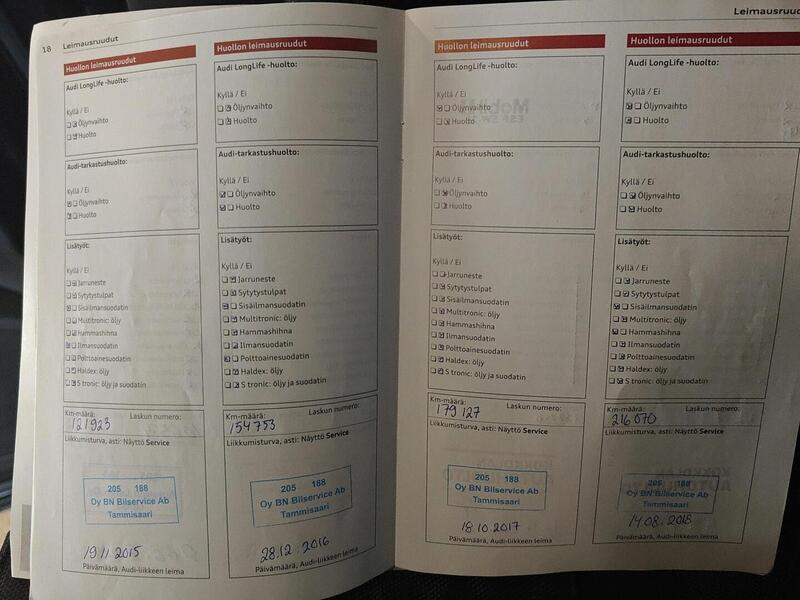 18 Leimausruudut
Huollon leimausruudut
Audi LongLife -huolto:
Kyllä / Ei
Öljynvaihto
Huolto
Audi-tarkastushuolto:
Kyllä / Ei
Öljynvaihto
Huolto
Lisätyöt:
Kyllä / Ei
Jarruneste
Sytytystulpat
Sisäilmansuodatin
Multitronic: öljy
Hammashihna
Ilmansuodatin
Polttoainesuodatin
Haldex: öljy
S tronic: öljy ja suodatin
Km-määrä: Laskun numero:
121923
Liikkumisturva, asti: Näyttö Service
205 188
Oy BN Bilservice Ab
Tammisaari
19.11.2015
Päivämäärä, Audi-liikkeen leima
Huollon leimausruudut
Audi LongLife -huolto:
Kyllä / Ei
Öljynvaihto
Huolto
Audi-tarkastushuolto:
Kyllä / Ei
Öljynvaihto
Huolto
Lisätyöt:
Kyllä / Ei
Jarruneste
Sytytystulpat
Sisäilmansuodatin
Multitronic: öljy
Hammashihna
Ilmansuodatin
Polttoainesuodatin
Haldex: öljy
S tronic: öljy ja suodatin
Km-määrä: Laskun numero:
154753
Liikkumisturva, asti: Näyttö Service
205 188
Oy BN Bilservice Ab
Tammisaari
28.12.2016
Päivämäärä, Audi-liikkeen leima
Huollon leimausruudut
Audi LongLife -huolto:
Kyllä / Ei
Öljynvaihto
Huolto
Audi-tarkastushuolto:
Kyllä / Ei
Öljynvaihto
Huolto
Lisätyöt:
Kyllä / Ei
Jarruneste
Sytytystulpat
Sisäilmansuodatin
Multitronic: öljy
Hammashihna
Ilmansuodatin
Polttoainesuodatin
Haldex: öljy
S tronic: öljy ja suodatin
Km-määrä: Laskun numero:
179 127
Liikkumisturva, asti: Näyttö Service
205 188
Oy BN Bilservice Ab
Tammisaari
18.10.2017
Päivämäärä, Audi-liikkeen leima
Leimausruud
Huollon leimausruudut
Audi LongLife -huolto:
Kyllä / Ei
Öljynvaihto
Huolto
Audi-tarkastushuolto:
Kyllä / Ei
Öljynvaihto
Huolto
Lisätyöt:
Kyllä / Ei
Jarruneste
Sytytystulpat
Sisäilmansuodatin
Multitronic: öljy
Hammashihna
Ilmansuodatin
Polttoainesuodatin
Haldex: öljy
S tronic: öljy ja suodatin
Km-määrä: Laskun numero:
216070
Liikkumisturva, asti: Näyttö Service
205 188
Oy BN Bilservice Ab
Tammisaari
14.08.2018
Päivämäärä, Audi-liikkeen leima